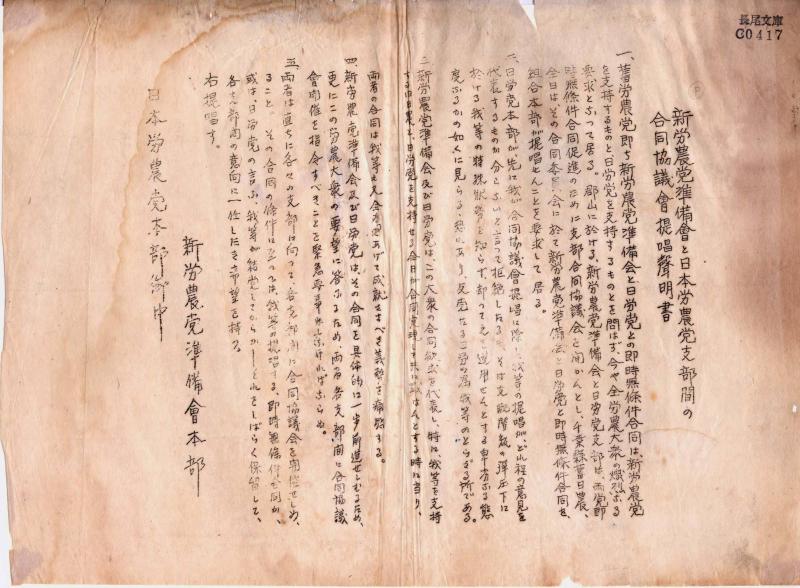 長尾文庫
C0417
新労農党準備會と日本労農党支部間の
合同協議會提唱聲明書
一、舊労農党即ち新労農党準備会と日労党との即時無條件合同は、新労農党
を支持するものと日労党を支持するものとを問はず、今や全労農大衆の熾烈なる
要求となって居る。郡山に於ける、新労農党準備会と日労党支部は両党即
時無條件合同促進のために支部合同協議会を開かんとし、千葉縣舊日農、
全日はその合同委員会に於て新労農党準備会、日労党と即時無條件合同を、
組合本部が提唱せんことを要求して居る。
二、日労党本部が先に我が合同協議會提唱に際し、我等の提唱が、どれ程の意見を
代表するものか分らないと言って拒絶したる、そは支配階級の弾圧下に
於ける我等の特殊状勢を知らず、却って之を逆用せんとする卑劣なる態
度なるかの如くに見らる、
我等のとらざる所である。
三、新労農党準備会及び日労党は、この大衆の合同欲求を代表し、特に、我等を支持
する旧日農と、日労党を支持せる全日が合同
時に当り、
両者の合同は我等も
あげて成就さすべき義務を痛感する。
四、新労農党準備会及び日労党は、その合同を具体的に一歩前進せしむるため、
更にこの労農大衆の要望に答ふるため両者各支部間に合同協議
會開催を指令すべきことを緊急事
なければならぬ。
五、両者は直ちに各々の支部に向って各支部間に合同協議会を開催せしめ、
ること、その合同の條件に至っては、我等の提唱する、即時無條件合同か、
或は、日労党の言ふ、我等が結党
それをしばらく保留して、
各支部間の意向に一任したき希望を持つ。
右提唱す。
新労農党準備會本部
日本労農党本部御中